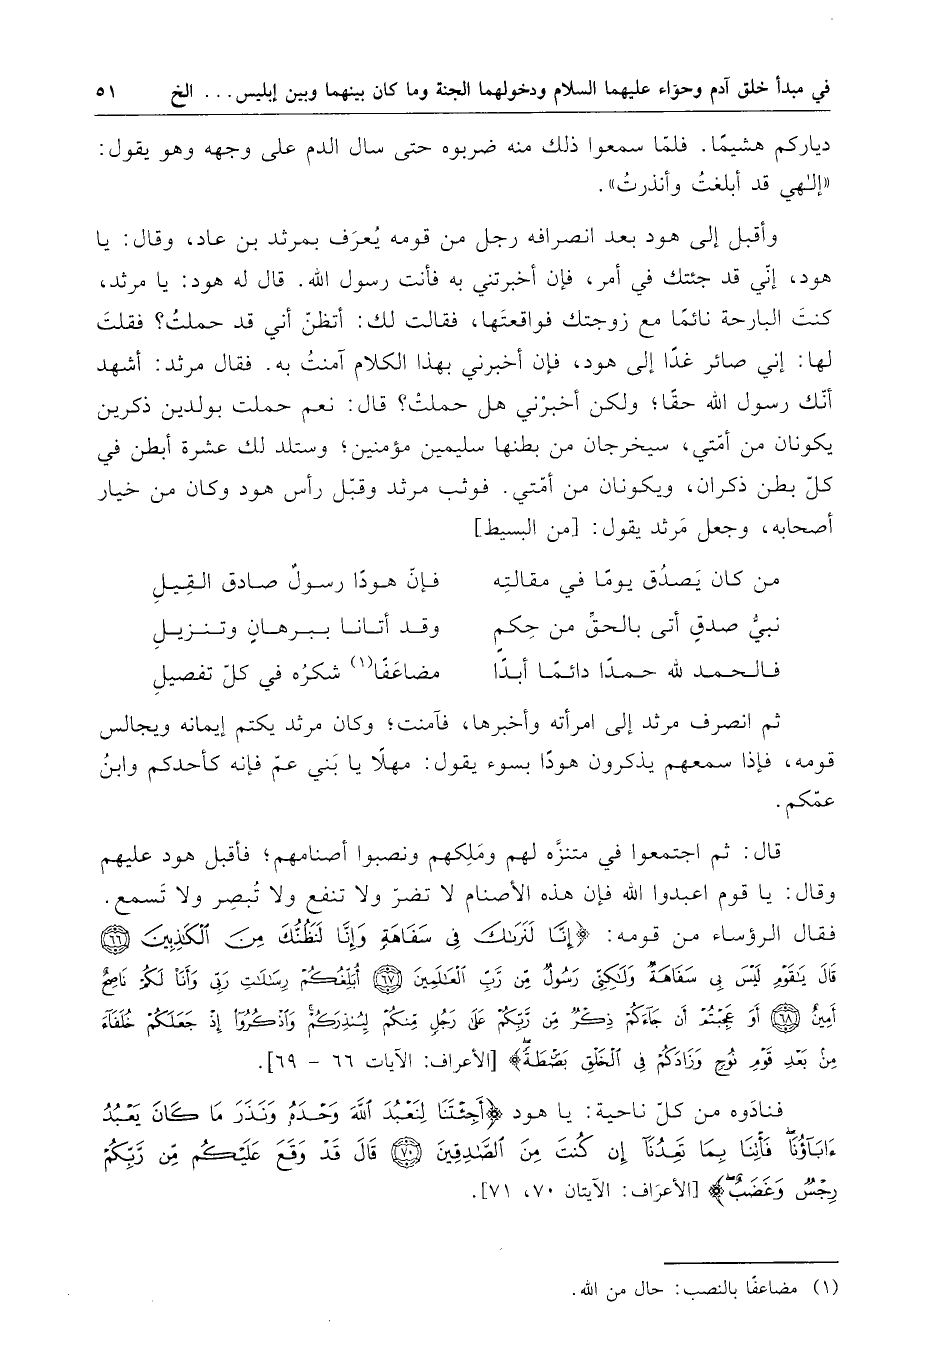 في مبدأ خلق آدم وحوّاء عليهما السلام ودخولهما الجنة وما كان بينهما وبين إبليس... الخ ٥١
دياركم هشيمًا. فلمّا سمعوا ذلك منه ضربوه حتى سال الدم على وجهه وهو يقول:
«إلـٰهي قد أبلغتُ وأنذرتُ».
وأقبل إلى هود بعد انصرافه رجل من قومه يُعرَف بمرثد بن عاد، وقال: يا
هود، إنّي قد جئتك في أمر، فإن أخبرتني به فأنت رسول الله. قال له هود: يا مرثد،
كنتَ البارحة نائمًا مع زوجتك فواقعتَها، فقالت لك: أتظنّ أني قد حملتُ؟ فقلتَ
لها: إني صائر غدًا إلى هود، فإن أخبرني بهذا الكلام آمنتُ به. فقال مرثد: أشهد
أنّك رسول الله حقًا؛ ولكن أخبرْني هل حملتْ؟ قال: نعم حملت بولدين ذكرين
يكونان من أمّتي، سيخرجان من بطنها سليمين مؤمنين؛ وستلد لك عشرة أبطن في
كلّ بطن ذكران، ويكونان من أمّتي. فوثب مرثد وقبّل رأس هود وكان من خيار
أصحابه، وجعل مَرثد يقول: [من البسيط]
من كان يَصدُق يومًا في مقالتِه فإنّ هودًا رسولٌ صادق القِيلِ
نبيُّ صدقٍ أتى بالحقِّ من حِكمٍ وقد أتانا ببرهانٍ وتنزيلِ
فالحمد لله حمدًا دائمًا أبدًا مضاعَفًا(١) شكرُه في كلّ تفصيلِ
ثم انصرف مرثد إلى امرأته وأخبرها، فآمنت؛ وكان مرثد يكتم إيمانه ويجالس
قومه، فإذا سمعهم يذكرون هودًا بسوء يقول: مهلًا يا بَني عمّ فإنه كأحدكم وابنُ
عمّكم.
قال: ثم اجتمعوا في متنزَّه لهم ومَلِكهم ونصبوا أصنامهم؛ فأقبل هود عليهم
وقال: يا قوم اعبدوا الله فإن هذه الأصنام لا تضرّ ولا تنفع ولا تُبصِر ولا تَسمع.
فقال الرؤساء من قومه: ﴿إِنَّا لَنَرَىٰكَ فِى سَفَاهَةٍ وَإِنَّا لَنَظُنُّكَ مِنَ ٱلْكَٰذِبِينَ ٦٦
قَالَ يَٰقَوْمِ لَيْسَ بِى سَفَاهَةٌ وَلَٰكِنِّى رَسُولٌ مِّن رَّبِّ ٱلْعَٰلَمِينَ ٦٧ أُبَلِّغُكُمْ رِسَٰلَٰتِ رَبِّى وَأَنَا۠ لَكُمْ نَاصِحٌ
أَمِينٌ ٦٨ أَوَ عَجِبْتُمْ أَن جَآءَكُمْ ذِكْرٌ مِّن رَّبِّكُمْ عَلَىٰ رَجُلٍ مِّنكُمْ لِيُنذِرَكُمْ وَٱذْكُرُوٓا۟ إِذْ جَعَلَكُمْ خُلَفَآءَ
مِنۢ بَعْدِ قَوْمِ نُوحٍ وَزَادَكُمْ فِى ٱلْخَلْقِ بَصْۜطَةً﴾ [الأعراف: الآيات ٦٦ - ٦٩].
فنادَوه من كلّ ناحية: يا هود ﴿أَجِئْتَنَا لِنَعْبُدَ ٱللَّهَ وَحْدَهُۥ وَنَذَرَ مَا كَانَ يَعْبُدُ
ءَابَآؤُنَا فَأْتِنَا بِمَا تَعِدُنَآ إِن كُنتَ مِنَ ٱلصَّٰدِقِينَ ٧٠ قَالَ قَدْ وَقَعَ عَلَيْكُم مِّن رَّبِّكُمْ
رِجْسٌ وَغَضَبٌ﴾ [الأعرَاف: الآيتان ٧٠، ٧١].
(١) مضاعفًا بالنصب: حال من الله.